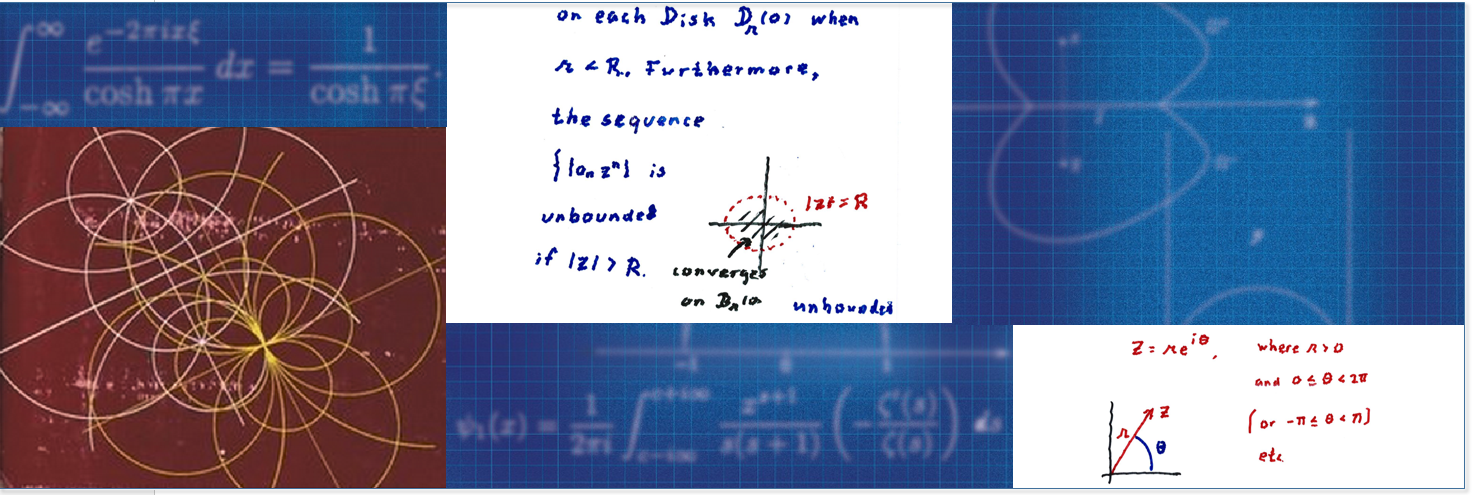 ∫_{-∞}^{∞} e^{-2πixξ} / cosh πx dx = 1 / cosh πξ .
on each Disk D_r(0) when
r < R. Furthermore,
the sequence
{|a_n z^n|} is
unbounded
if |z| > R.
|z| = R
converges
on D_r(0
unbounded
-1 0 1
ψ_1(x) = 1 / 2πi ∫_{c-i∞}^{c+i∞} x^{s+1} / s(s+1) ( - ζ'(s) / ζ(s) ) ds
z = re^{iθ}, where r > 0
and 0 ≤ θ < 2π
(or -π ≤ θ < π)
etc.
z
r
θ